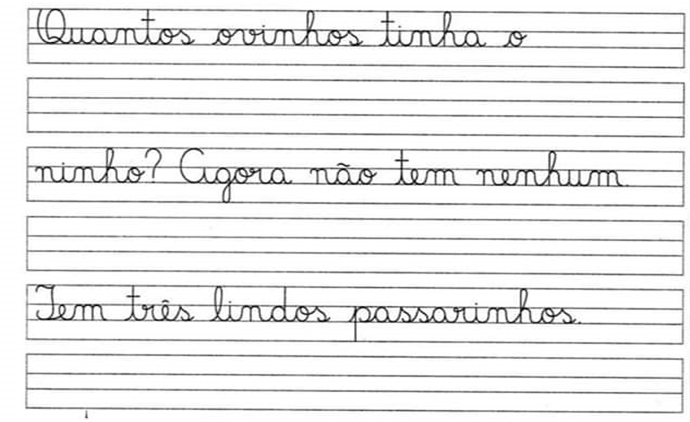 Quantos ovinhos tinha o
ninho? Agora não tem nenhum
Tem três lindos passarinhos.